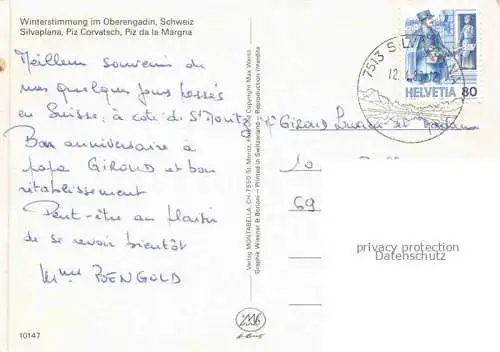 Winterstimmung im Oberengadin, Schweiz
Silvaplana, Piz Corvatsch, Piz da la Margna
Meilleur souvenir de
mes quelques jours passés
en Suisse, à coté de St Moritz
Bon anniversaire à
papa GIROUD et bon
rétablissement
Peut-être au plaisir
de se revoir bientôt
Mme BENGOLD
10147
Verlag MONTABELLA, CH-7550 St. Moritz, Copyright Max Weiss
Graphik Wiesner & Printed in Switzerland - Reproduction interdite
7513 SILVAPLANA
12
HELVETIA 80
GIROUD et Madame
10
69
privacy protection
Datenschutz